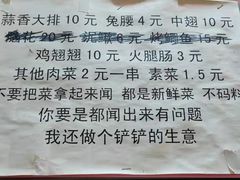 蒜香大排 10 元 兔腰 4 元 中翅 10 元
腰花 20 元 泥鳅 6 元 烤鲫鱼 15 元
鸡翅翅 10 元 火腿肠 3 元
其他肉菜 2 元一串 素菜 1.5 元
不要把菜拿起来闻 都是新鲜菜 不码料
你要是都闻出来有问题
我还做个铲铲的生意